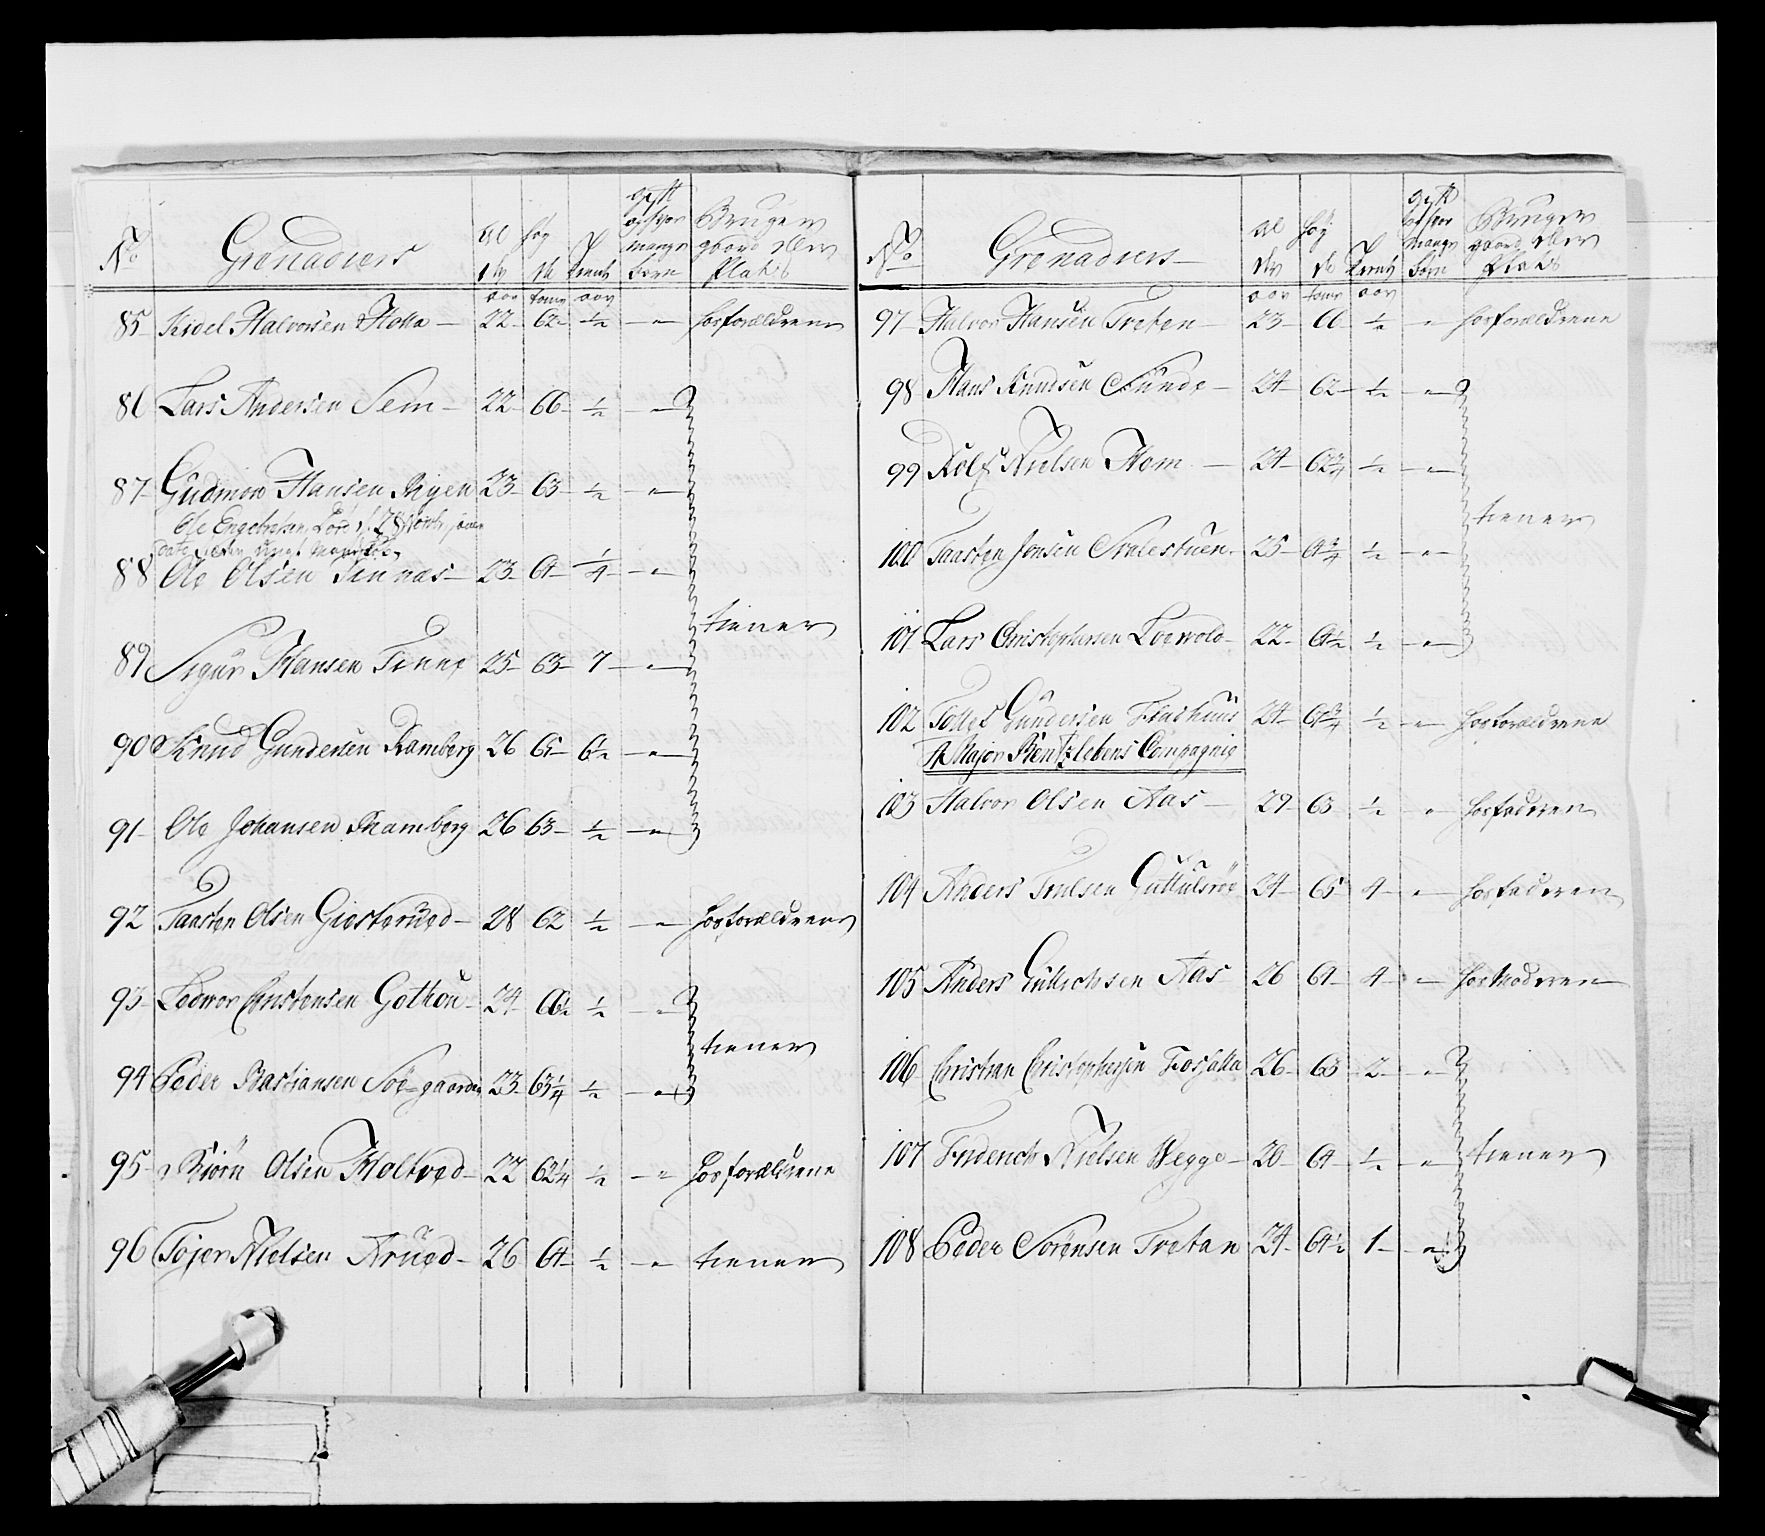 No Grenadiers Al der Høy de Tient gift og hvor mange børn Bruger gaard eller Plads
aar tomr aar
85 Kidel Halvorsen Holla 22 62 ½ " hos forældrene
86 Lars Andersen Sem 22 66 ½ "
87 Gudmon Hansen Rigen 23 63 ½ "
Ole Engebretsen
88 Ole Olsen Tinnæs 23 64 ¼ "
tiener
89 Sigur Hansen Tinne 25 63 7 "
90 Knud Gundersen Ramberg 26 65 6½ "
91 Ole Johansen Ramberg 26 63 ½ "
92 Taasten Olsen Giesterued 28 62 ½ " hos forældrene
93 Ledwor Christensen Gothou 24 66½ ½ "
tiener
94 Peder Bastiansen Soegaarden 23 63¼ ½ "
95 Biørn Olsen Holtved 22 62¼ ½ " hos forældrene
96 Tojer Nielsen Arued 26 64 ½ " tiener
No Grenadiers Al der Høy de Tient gift og hvor mange Børn Bruger gaard eller Plads
aar tomr aar
97 Halvor Hansen Treten 23 66 ½ " hos forældrene
98 Hans Knudsen Sunde 24 62 ½ "
99 Rolf Nielsen Hem 24 62¾ ½ "
tiener
100 Taasten Jonsen Stalestuen 25 64¾ ½ "
101 Lars Christophersen Loewold 22 64½ ½ "
102 Tollef Gundersen Flashuus 24 64¾ ½ " hos forældrene
Af Major Rentzlebens Compagnie
103 Halvor Olsen Aas 29 63 ½ " hos faderen
104 Anders Trulsen Guttulsrøe 24 65 4 " hos faderen
105 Anders Gulichsen Aas 26 64 4 " hos Moderen
106 Christian Christophersen Fosholla 26 63 2 "
107 Friderich Nielsen Hegge 20 64 ½ " tiener
108 Peder Sørensen Tretan 24 64½ 1 "